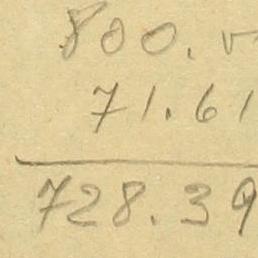 800.
71.61
728.39